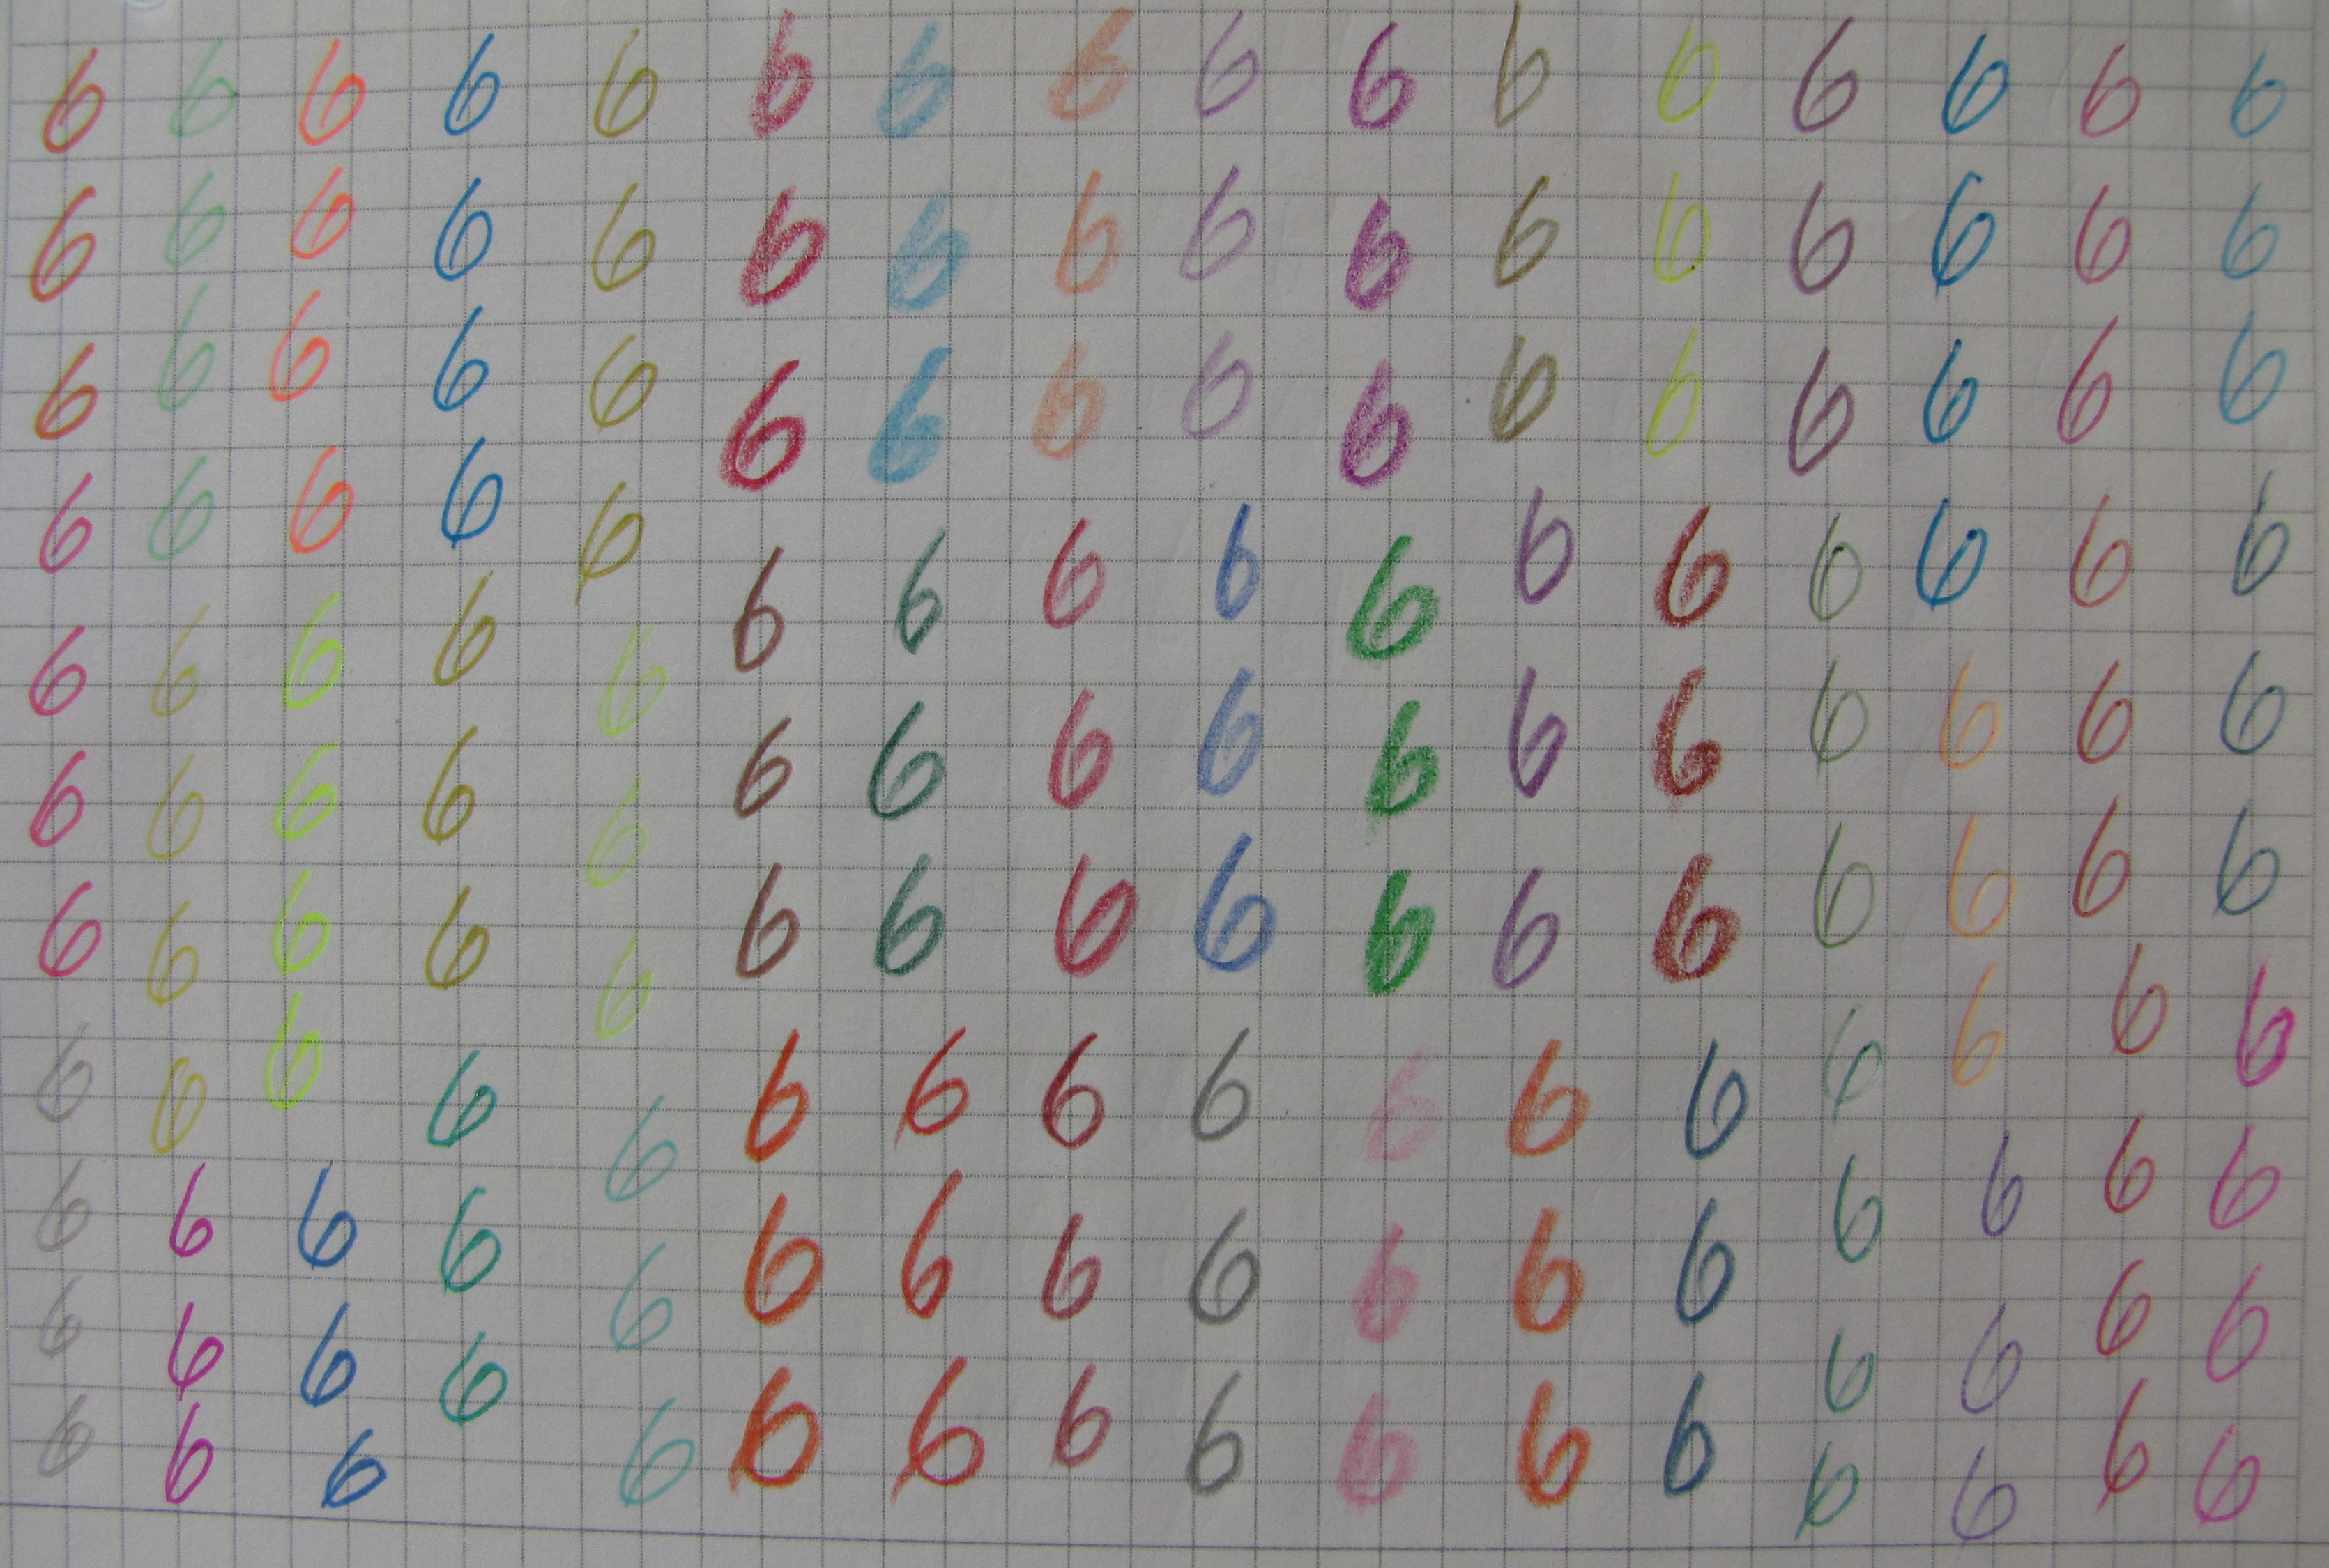 6 6 6 6 6 6 6 6 6 6 6 6 6 6 6 6
6 6 6 6 6 6 6 6 6 6 6 6 6 6 6 6
6 6 6 6 6 6 6 6 6 6 6 6 6 6 6 6
6 6 6 6 6 6 6 6 6 6 6 6 6 6 6 6
6 6 6 6 6 6 6 6 6 6 6 6 6 6 6 6
6 6 6 6 6 6 6 6 6 6 6 6 6 6 6 6
6 6 6 6 6 6 6 6 6 6 6 6 6 6 6 6
6 6 6 6 6 6 6 6 6 6 6 6 6 6 6 6
6 6 6 6 6 6 6 6 6 6 6 6 6 6 6 6
6 6 6 6 6 6 6 6 6
6 6 6